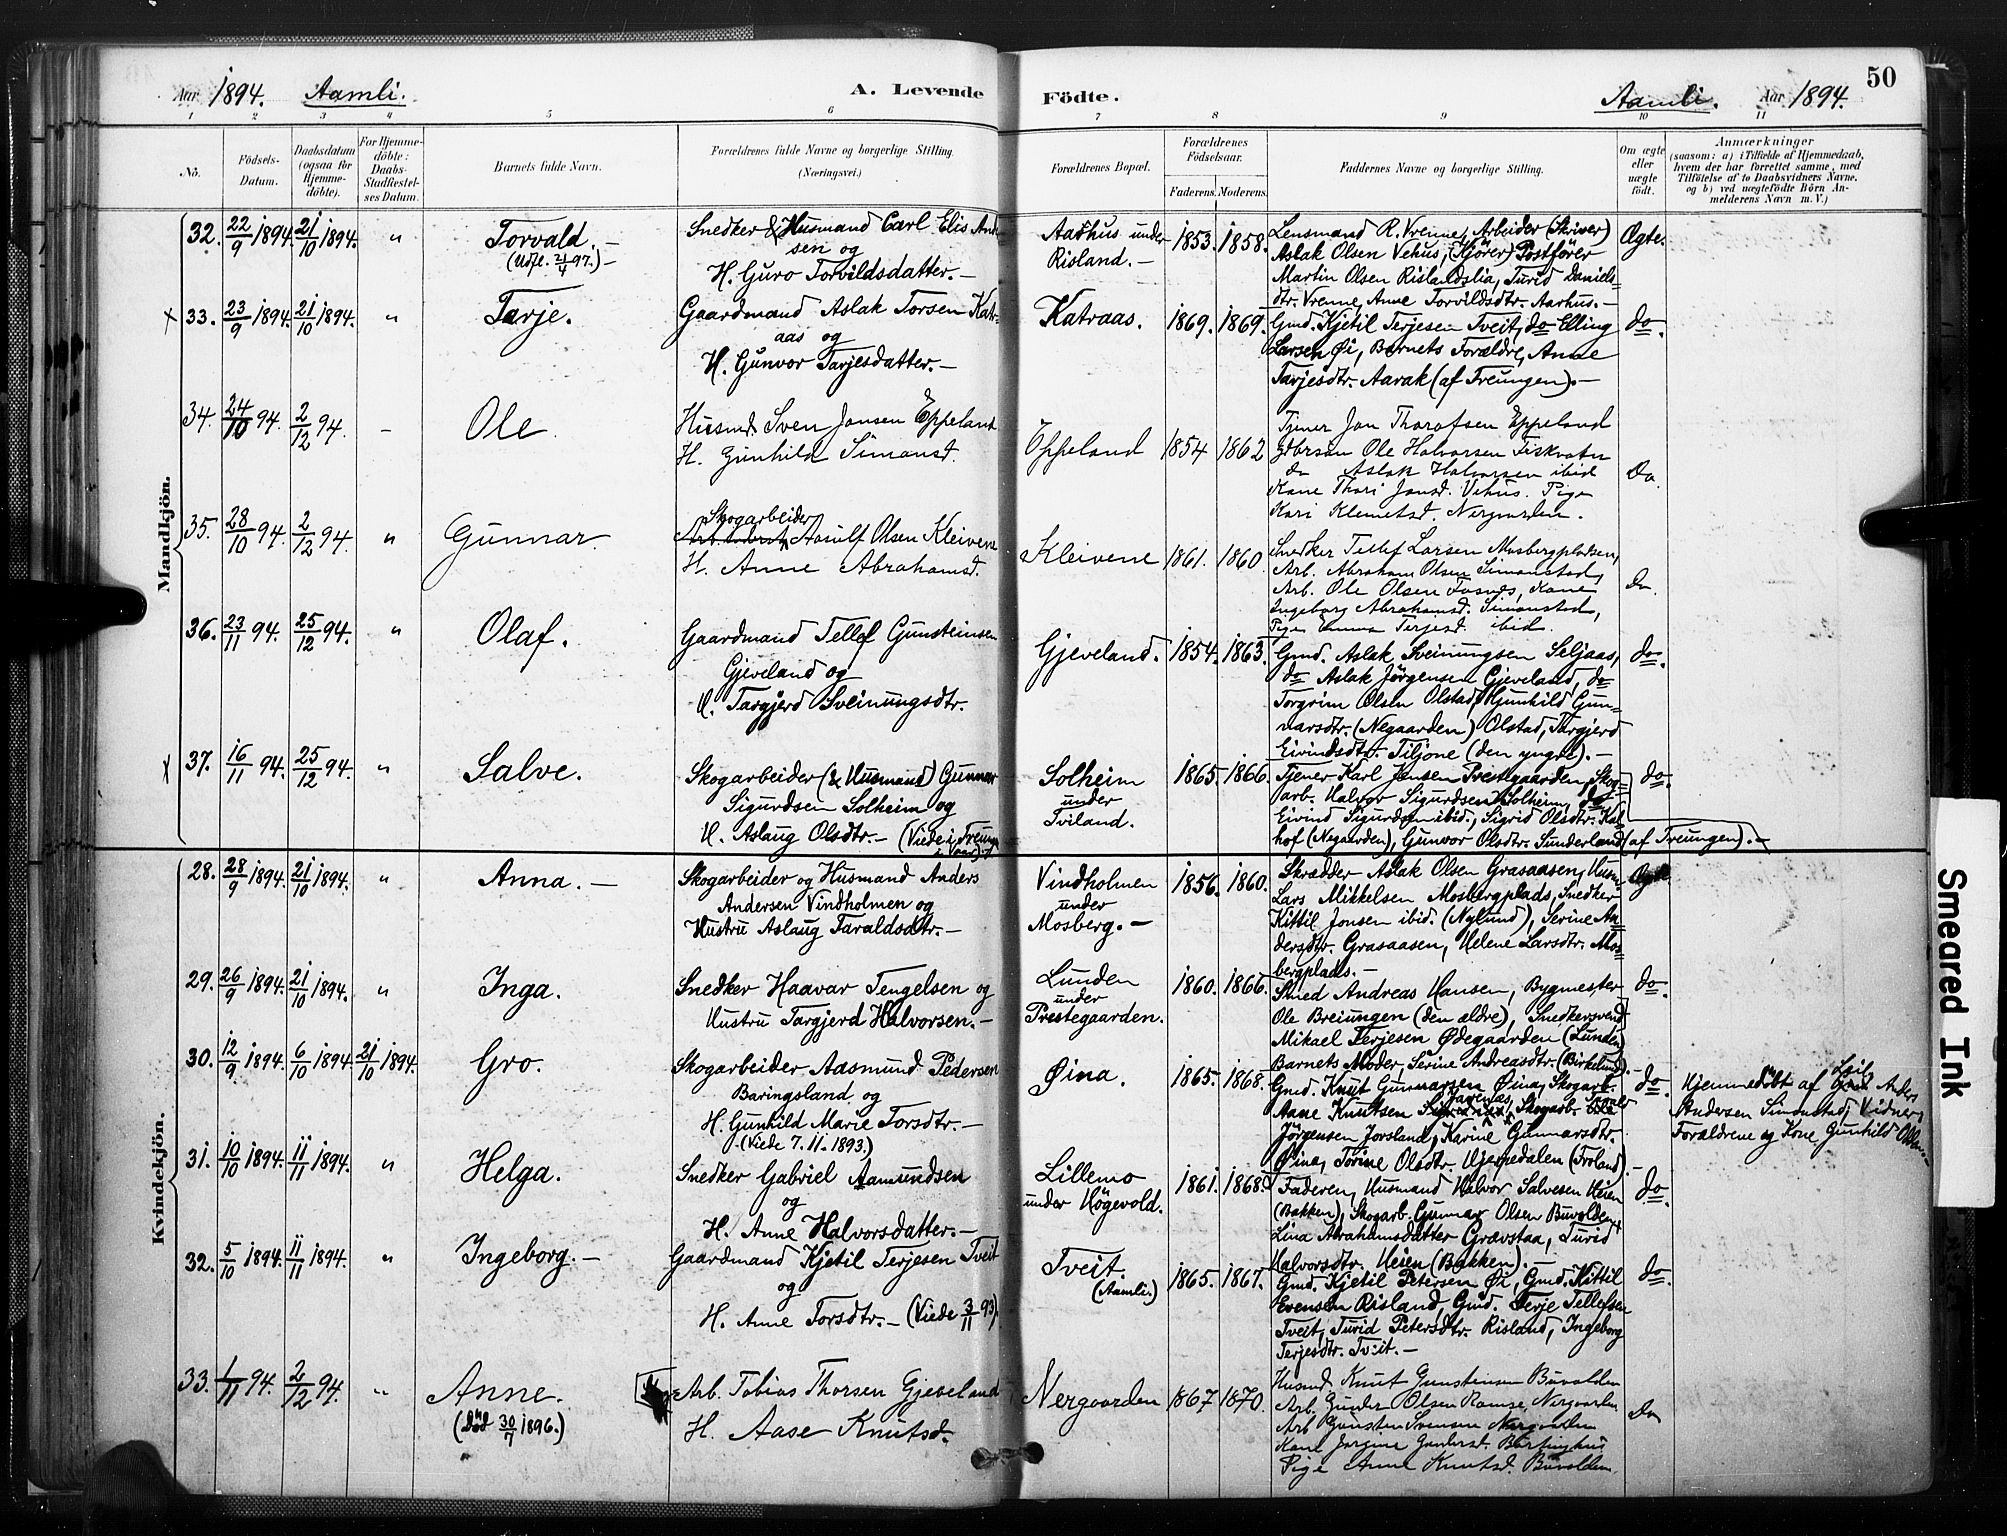 Aar 1894. Aamli. A. Levende Födte. Aamli. Aar 1894. 50
1 2 3 4 5 6 7 8 9 10 11
No.
Födsels-
Datum.
Daabsdatum
(ogsaa for
Hjemme-
döbte).
For Hjemme-
döbte:
Daabs-
Stadfæstel-
ses Datum.
Barnets fulde Navn.
Forældrenes fulde Navne og borgerlige Stilling.
(Næringsvei.)
Forældrenes Bopæl.
Forældrenes
Födselsaar.
Faderens. Moderens.
Faddernes Navne og borgerlige Stilling.
Om ægte
eller
uægte
födt.
Anmærkninger
(saasom: a) i Tilfælde af Hjemmedaab,
hvem der har forrettet samme, med
Tilföielse af to Daabsvidners Navne,
og b) ved uægtefödte Börn An-
melderens Navn m. V.)
Mandkjön.
32. 22/9 1894. 21/10 1894. "
Torvald. –
(Udfl. 21/4 97.) –
Snedker & Husmand Carl Elis And
sen og
H. Guro Torvildsdatter. –
Aarhus under
Risland. –
1853. 1858.
Lensmand R. Vrenne, Arbeider (Skriver)
Aslak Olsen Vehus, (Kjörer) Postförer
Martin Olsen Rislandslia, Turid Daniels-
dtr. Vrenne, Anne Torvildsdtr. Aarhus. –
Ægte.
x 33. 23/9 1894. 21/10 1894. "
Tarje.
Gaardmand Aslak Torsen Katr-
aas og
H. Gunvor Tarjesdatter. –
Katraas.
1869. 1869.
Gmd. Kjetil Terjesen Tveit, do Elling
Larsen Øi, Barnets Forældre, Anne
Tarjesdtr. Aarak (af Treungen). –
do.
34. 24/10 94. 2/12 94. –
Ole
Husmd. Sven Jonsen Eppeland
H. Gunhild Simonsd.
Eppeland
1854 1862
Tjener Jon Tharafsen Eppeland
Ole Halvorsen Fiskvatn
do Aslak Halvorsen ibid
Kone Thari Jonsd. Vehus. Pige
Kari Klemetsd. Nergaarden.
Do.
35. 28/10 94. 2/12 94. "
Gunnar.
Skogarbeider
Aasulf Olsen Kleivene
H. Anne Abrahamsd.
Kleivene
1861. 1860.
Snedker Tellef Larsen Mosbergpladsen,
Arb. Abraham Olsen Simonstad,
Arb. Ole Olsen Fosnes, Kone
Ingeborg Abrahamsd. Simonstad,
Pige Emma Terjesd. ibid.
Do.
36. 23/11 94. 25/12 94. "
Olaf.
Gaardmand Tellef Gunsteinsen
Gjeveland og
H. Targjerd Sveinungsdtr.
Gjeveland.
1854. 1863.
Gmd. Aslak Sveinungsen Seljaas,
do Aslak Jörgensen Gjeveland, do
Torgrim Olsen Olstad, Gunhild Gun-
narsdtr. (Negaarden) Olstad, Targjerd
Eivindsdtr. Tiljone (den yngre). –
do.
x 37. 16/11 94. 25/12 94. "
Salve.
Skogarbeider (& Husmand) Gunnar
Sigurdsen Solheim og
H. Aslaug Olsdtr. – (Viede i Treungen
i Vaar). –
Solheim
under
Tviland.
1865. 1866.
Tjener Karl Jensen Prestegaarden, Skog-
arb. Halvor Sigurdsen Solheim, do
Eivind Sigurdsen ibid., Sigrid Olsdtr. Kal
hof (Negaarden), Gunvor Olsdtr. Sunderland (af Treungen). –
do.
Kvindekjön.
28. 28/9 1894. 21/10 1894. "
Anna. –
Skogarbeider og Husmand Anders
Andersen Vindholmen og
Hustru Aslaug Taraldsdtr. –
Vindholmen
under
Mosberg. –
1856. 1860.
Skrædder Aslak Olsen Grasaasen, Husm.
Lars Mikkelsen Mosbergplads, Snedker
Kittil Jonsen ibid. (Nylund), Serine An-
dersdtr. Grasaasen, Helene Larsdtr. Mos-
bergplads. –
Ægte.
29. 26/9 1894. 21/10 1894. "
Inga.
Snedker Haavar Tengelsen og
Hustru Targjerd Halvorsen. –
Lunden
under
Prestegaarden.
1860. 1866.
Smed Andreas Hansen, Bygmester
Ole Breiungen (den ældre), Snedkersvend
Mikael Terjesen Ødegaarden (Lunden)
Barnets Moder, Serine Andreasdtr. (Birkelund). –
do.
30. 12/9 1894. 6/10 1894. 21/10 1894.
Gro.
Skogarbeider Aasmund Pedersen
Baringsland og
H. Gunhild Marie Torsdtr. –
(Viede 7. 11. 1893.)
Øina.
1865. 1868.
Gmd. Knut Gunnarsen Øina, Skogarb.
Aane Knutsen Skogarb.
Jörgensen Jorsland, Karine Gunnarsdtr.
Øina, Torine Olsdtr. Hjerpedalen (Froland). –
do.
Hjemmedöbt af Anders
Andersen Simonstad, Vidner,
Forældrene og Kone Gunhild
31. 10/10 1894. 11/11 1894. "
Helga.
Snedker Gabriel Aamundsen
og
H. Anne Halvorsdatter. –
Lillemo
under Högevold.
1861. 1868.
Faderen, Husmand Halvor Salvesen Heien
(Bakken), Skogarb. Gunnar Olsen Buvolden,
Lina Abrahamsdatter Gravstaa, Turid
Halvorsdtr. Heien (Bakken). –
do.
32. 5/10 1894. 11/11 1894. "
Ingeborg. –
Gaardmand Kjetil Terjesen Tveit
og
H. Anne Torsdtr. – (Viede 3/11 93).
Tveit.
(Aamli.)
1865. 1867.
Gmd. Kjetil Petersen Øi, Gmd. Kittil
Evensen Risland, Gmd. Terje Tellefsen
Tveit, Turid Petersdtr. Risland, Ingeborg
Terjesdtr. Tveit. –
do.
33. 1/11 94. 2/12 94. "
Anne.
(död 30/7 1896.)
Arb. Tobias Thorsen Gjeveland
H. Aase Knutsd.
Nergaarden
1867 1870.
Husmd Knut Gunsteinsen Buvolden
Arb. Gunder Olsen Ramse, Nergaarden
Arb Gunsten Svensen Nergaarden
Kone Jorgine Gundersd.
Pige Anne Knutsd. Buvolden.
Do
Smeared Ink